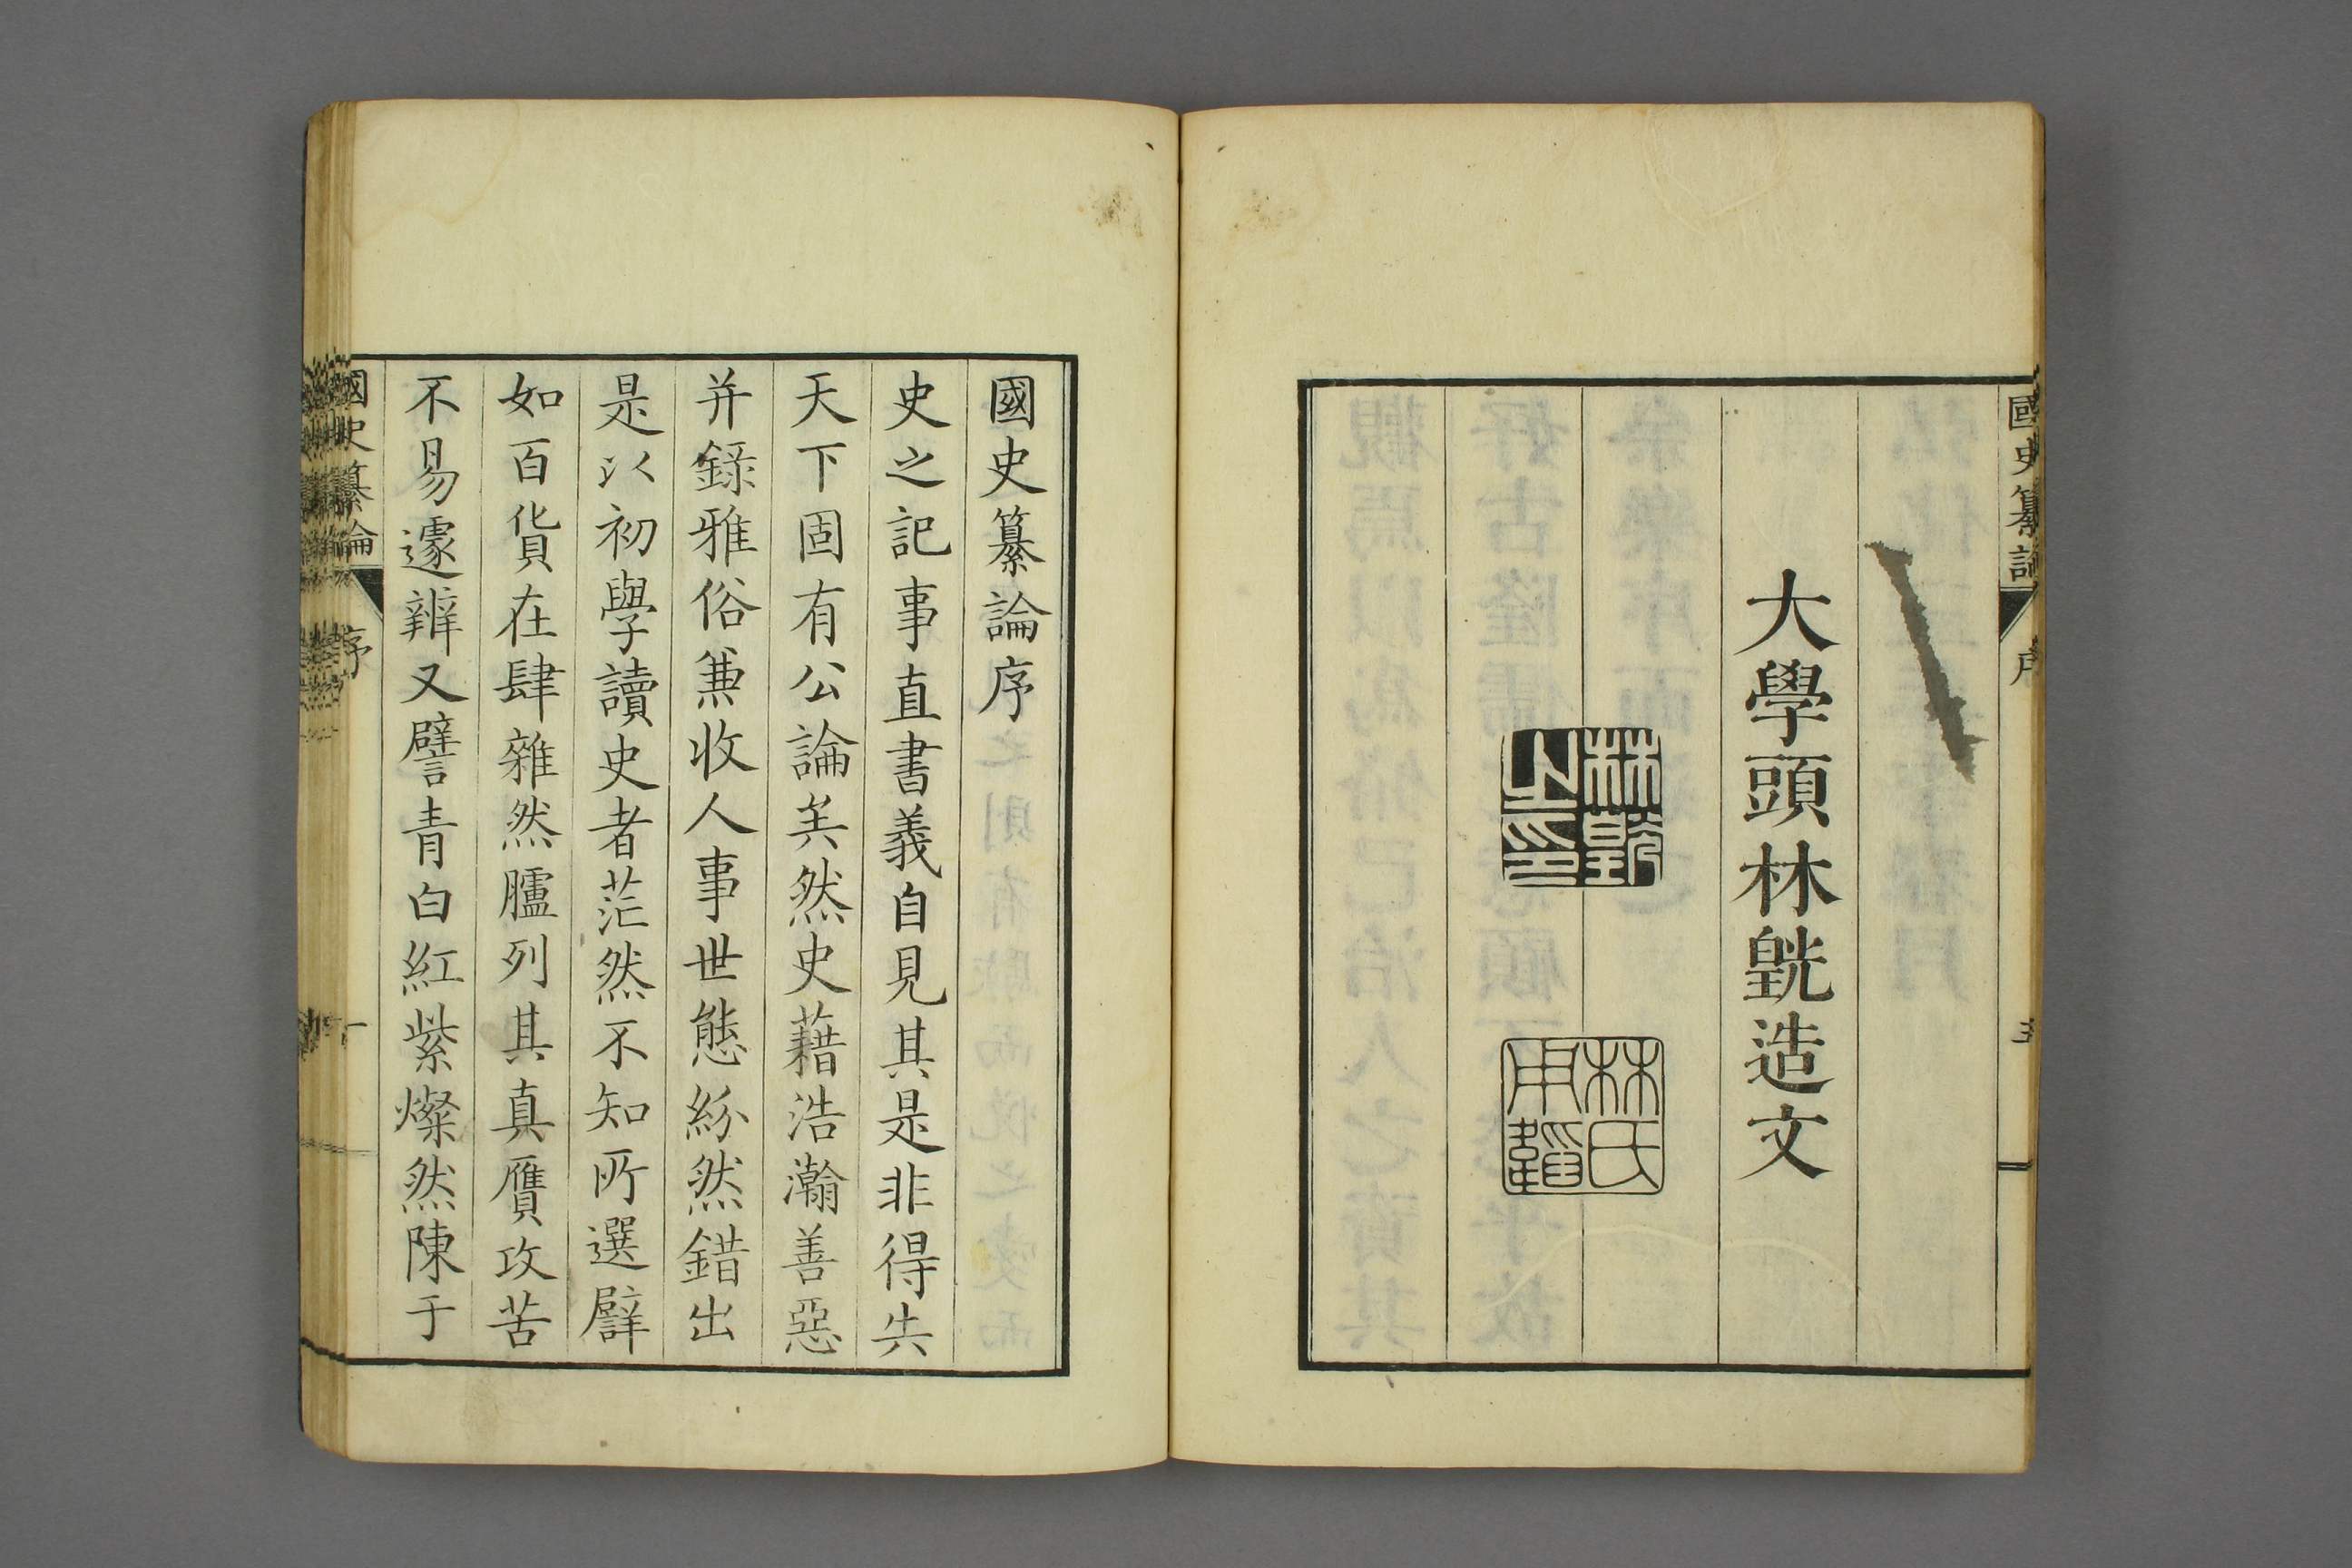 國史纂論
序
大學頭林皝造文
林皝之印
林氏用韜
國史纂論序
史之記事直書義自見其是非得失
天下固有公論矣然史藉浩瀚善惡
并錄雅俗兼收人事世態紛然錯出
是以初學讀史者茫然不知所選譬
如百貨在肆雜然臚列其真贋攻苦
不易遽辨又譬青白紅紫燦然陳于
國史纂論
序
一